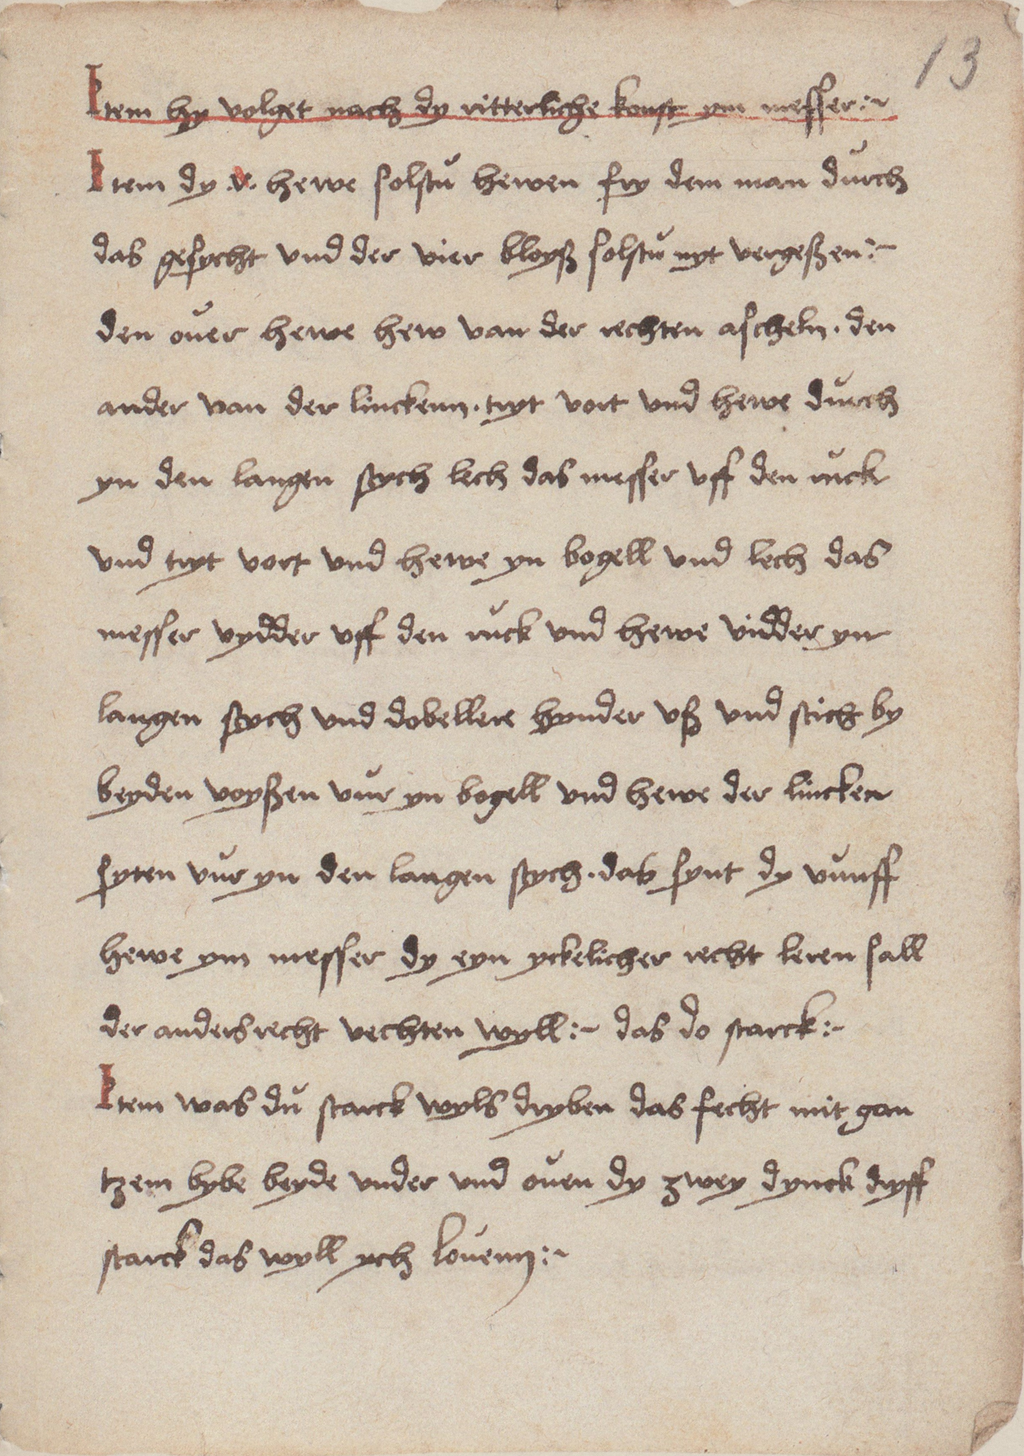 13
Item hy volget nach dy ritterliche konst ym messer:~
Item dy .v. hewe solstu hewen fry dem man durch
das gesycht vnd der vier bloyß solstu nyt vergeßen:~
den ouer hewe hew van der rechten ascheln. den
ander van der linckenn. tryt vort vnd hewe durch
yn den langen stych lech das messer vff den ruck
vnd tryt vort vnd hewe yn bogell vnd lech das
messer vydder vff den ruck vnd hewe vidder yn
langen stych vnd dobellere hynder vß vnd stich by
beyden voyßen vur yn bogell vnd hewe der lincken
syten vur yn den langen stych. das synt dy vunff
hewe ym messer dy eyn yckelicher recht leren sall
der anders recht vechten wyll:~ das do starck:~
Item was du starck wyls dryben das fecht mit gan
tzem lybe beyde vnder vnd ouen dy zwey dynck dryff
starck das wyll ych louenn:~